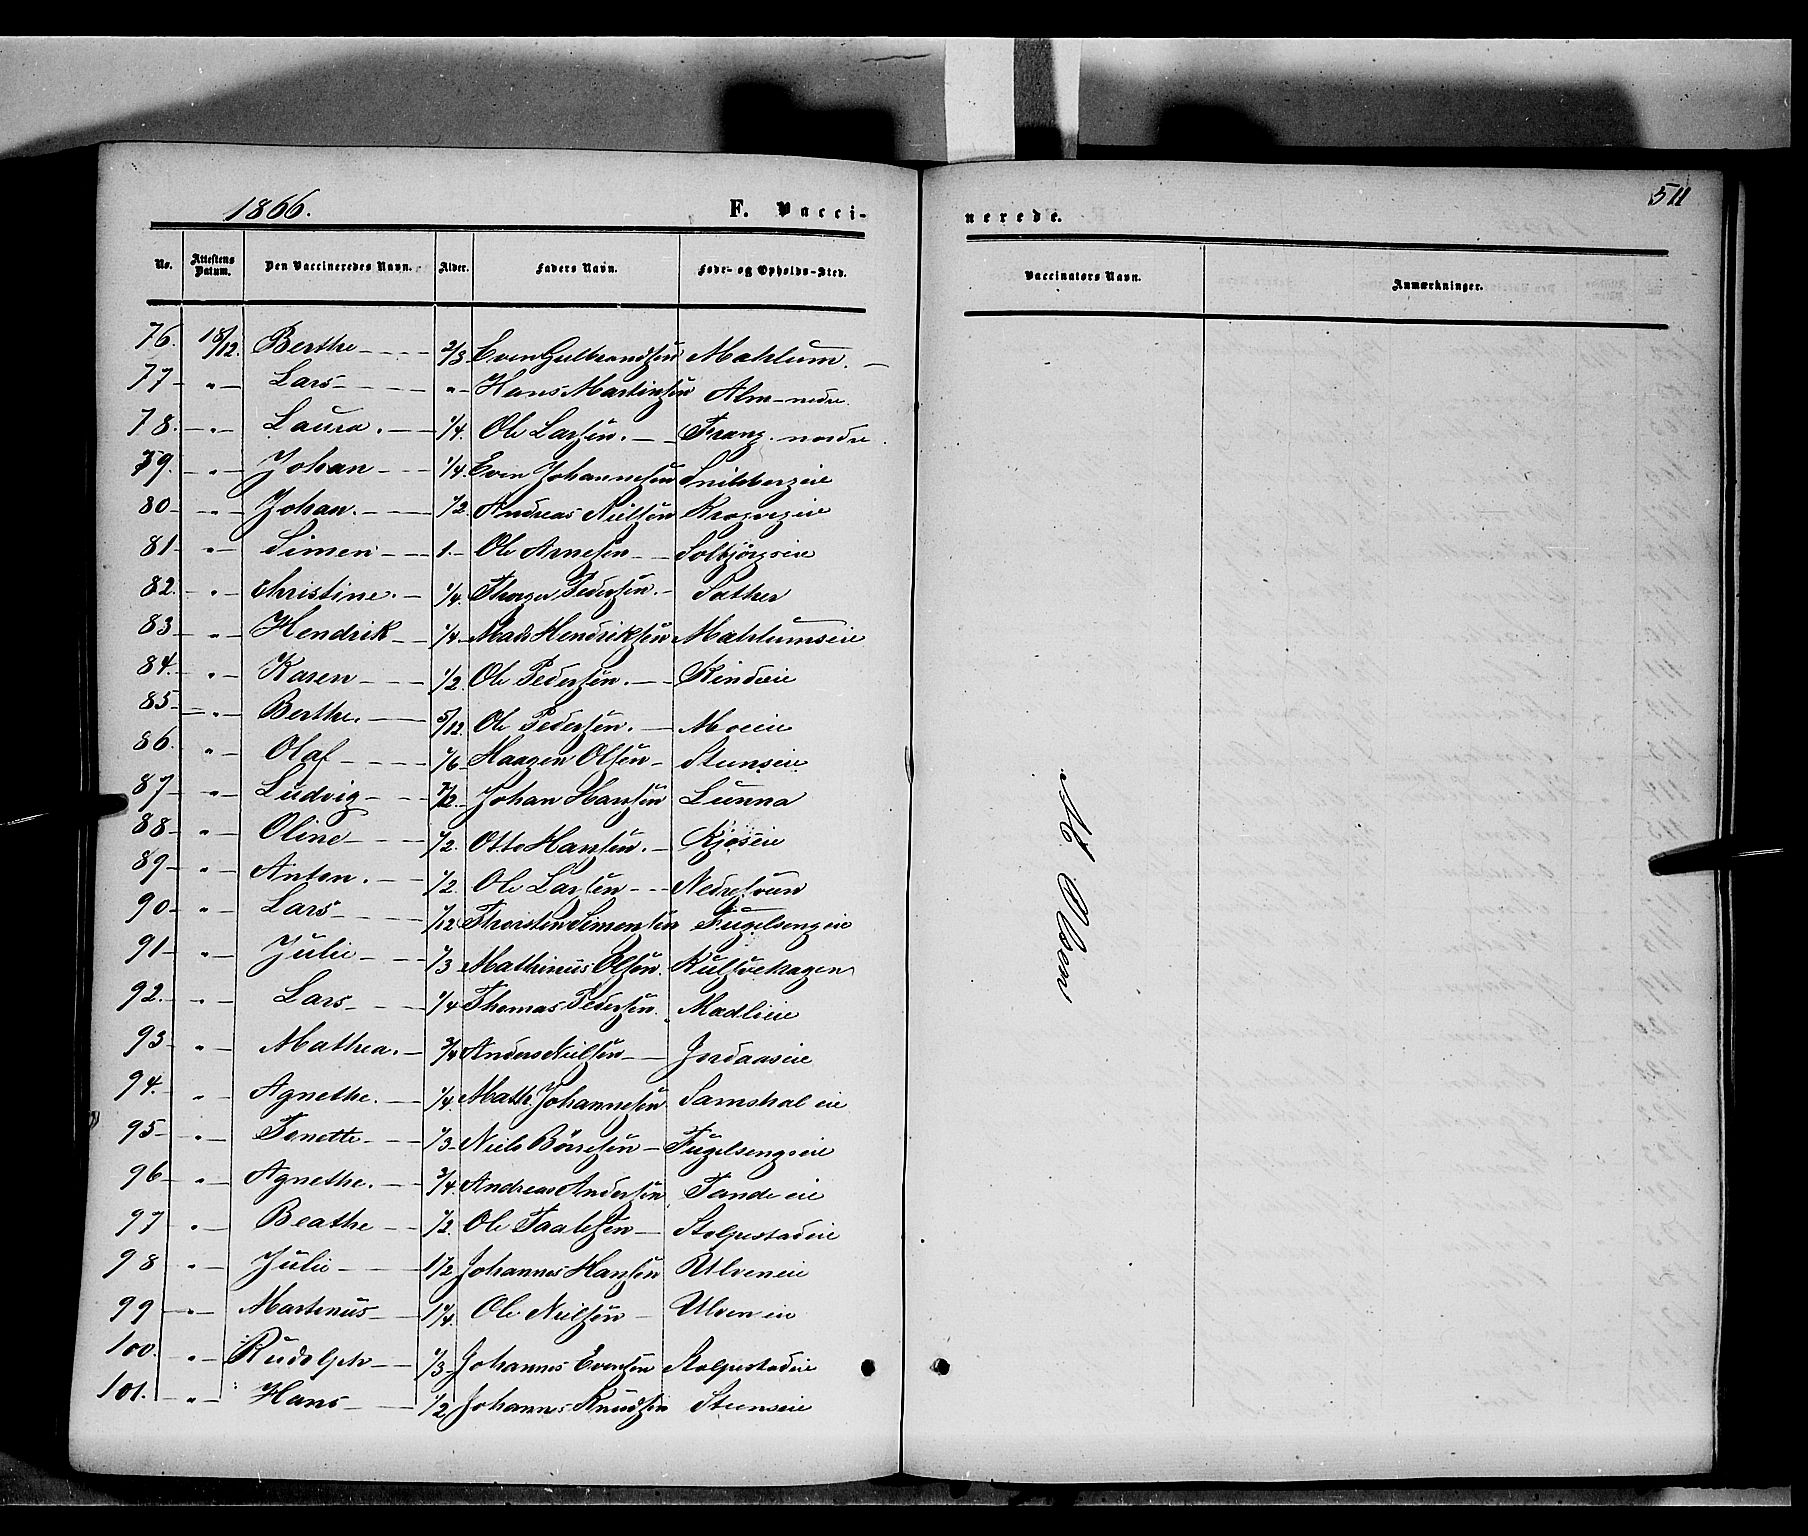 1866.
F. Vacci-
nerede.
511
No. Attestens Datum. Den Vaccineredes Navn. Alder. Faders Navn. Føde- og Opholds-Sted. Vaccinators Navn. Anmærkninger.
76. 18/12. Berthe 2/3 Even Gulbrandsen Mæhlum.
77 " Lars " Hans Martinsen Alm nedre.
78. " Laura. 1/4. Ole Larsen. Frang nordre.
79. " Johan 1/4. Even Johannesen
80 " Johan. 1/2. Andreas Nielsen
81 " Simen 1. Ole Arnesen
82. " Christine. 1/4. Pedersen. Sæther
83 " Hendrik 1/4. Mads Hendriksen Mæhlumseie
84. " Karen 1/2. Ole Pedersen. Kindeie
85 " Berthe. 5/12. Ole Pedersen. Moeie
86. " Olaf 1/6 Haagen Olsen Stenseie
87 " Ludvig 7/12. Johan Hansen Lunna
88 " Oline 1/2. Otto Hansen. Kjoseie
89 " Anton. 1/2 Ole Larsen
90 " Lars 1/12 Thorsten Simensen Fugelsengeie
91 " Julie 1/3 Mathinus Olsen.
92. " Lars 1/4 Thomas Pedersen. Madlieie
93 " Mathea. 3/4 Anders Nielsen Jordaaseie
94. " Agnethe. 1/4. Math. Johannesen Samshal eie
95 " Tonette 1/3 Niels Börresen Fugelsengseie
96 " Agnethe. 3/4 Andreas Andersen Tande eie
97 " Beathe 1/2. Ole Taalesen Stolpestadeie
98 " Julie 1 1/2 Johannes Hansen Ulveneie
99 " Martinus 1 1/4. Ole Nielsen Ulven eie
100. " Rudolph 1/3 Johannes Evensen Stolpestadeie
101. " Hans 1/2 Johannes Knudsen Stenseie
M Olsen